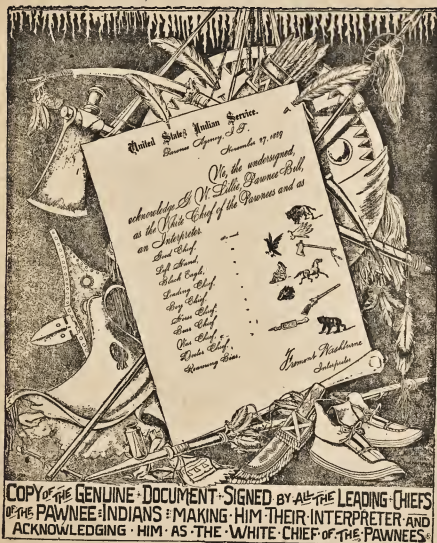 United States Indian Service.
Pawnee Agency, I. T.
November 27, 1889
We, the undersigned,
acknowledge G. W. Lillie, Pawnee Bill,
as the White Chief of the Pawnees and as
an Interpreter.
Chief,
Left Hand,
Black Eagle,
Leading Chief,
Boy Chief,
Chief,
Chief,
Chief,
Chief,
Roaming
Interpreter
COPY OF THE GENUINE DOCUMENT SIGNED BY ALL THE LEADING CHIEFS
OF THE PAWNEE INDIANS MAKING HIM THEIR INTERPRETER AND
ACKNOWLEDGING HIM AS THE WHITE CHIEF OF THE PAWNEES